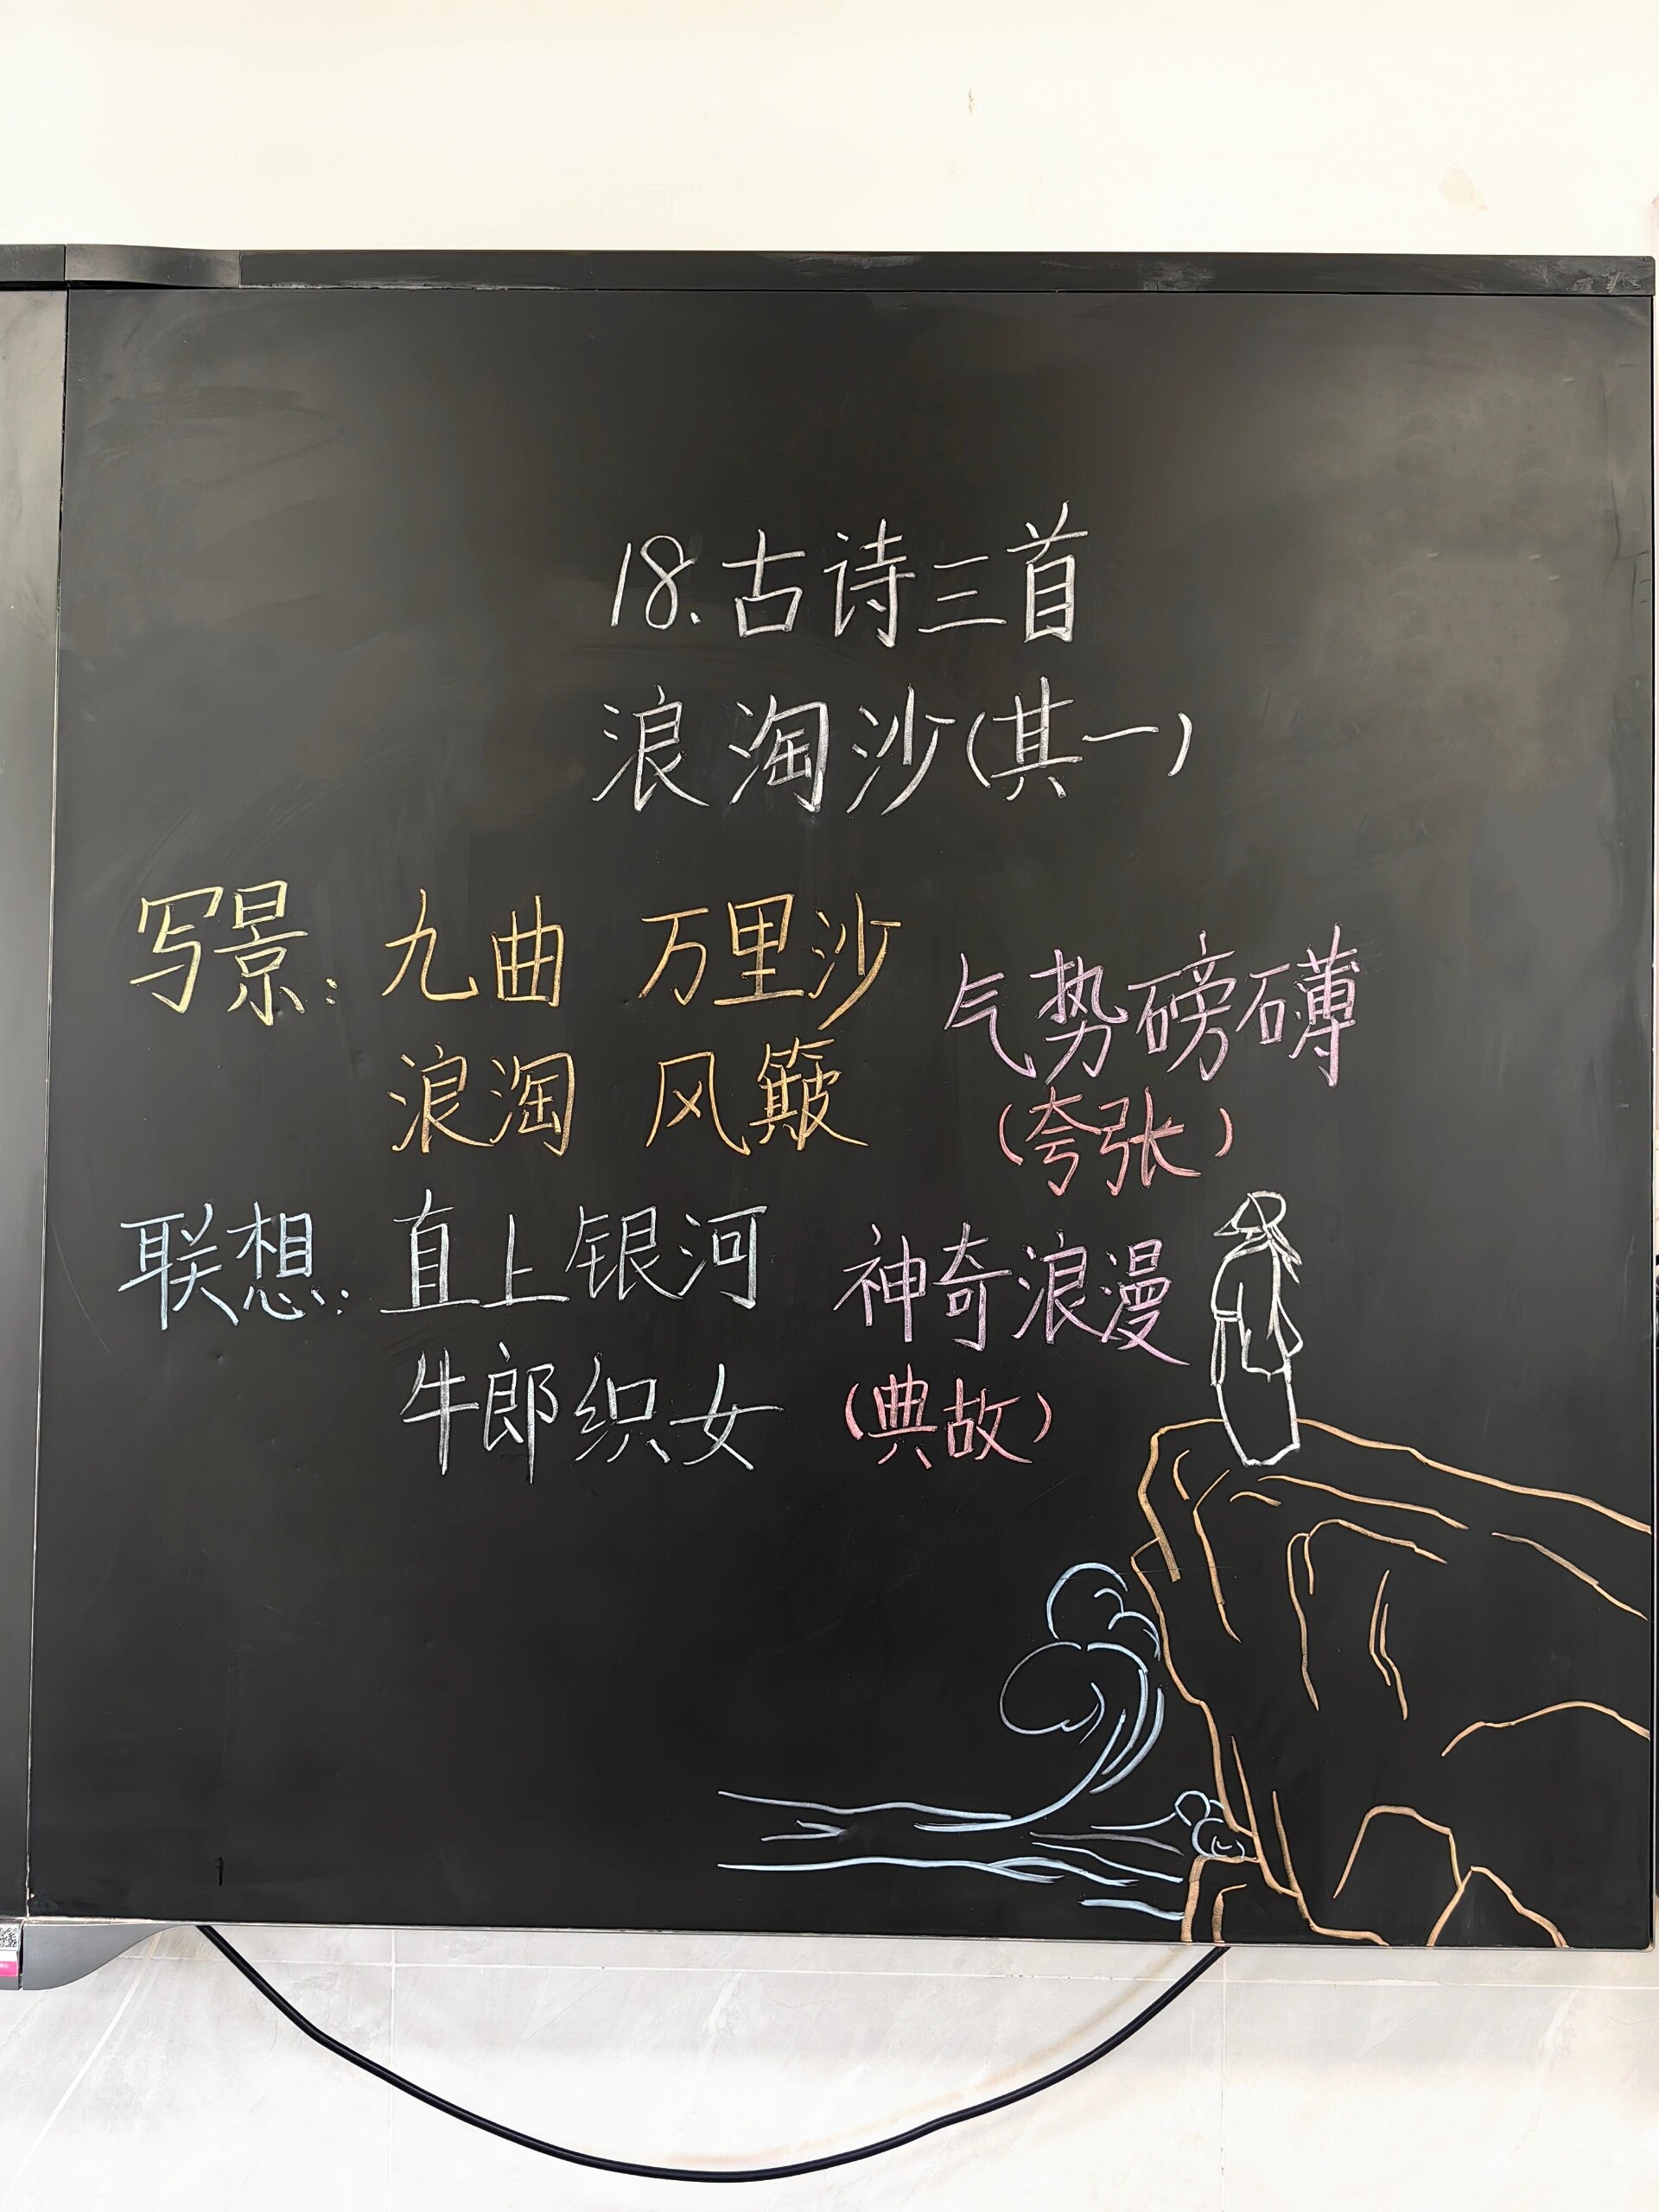 18.古诗三首
浪淘沙(其一)
写景:九曲 万里沙
气势磅礴
浪淘 风簸
(夸张)
联想:直上银河
神奇浪漫
牛郎织女
(典故)